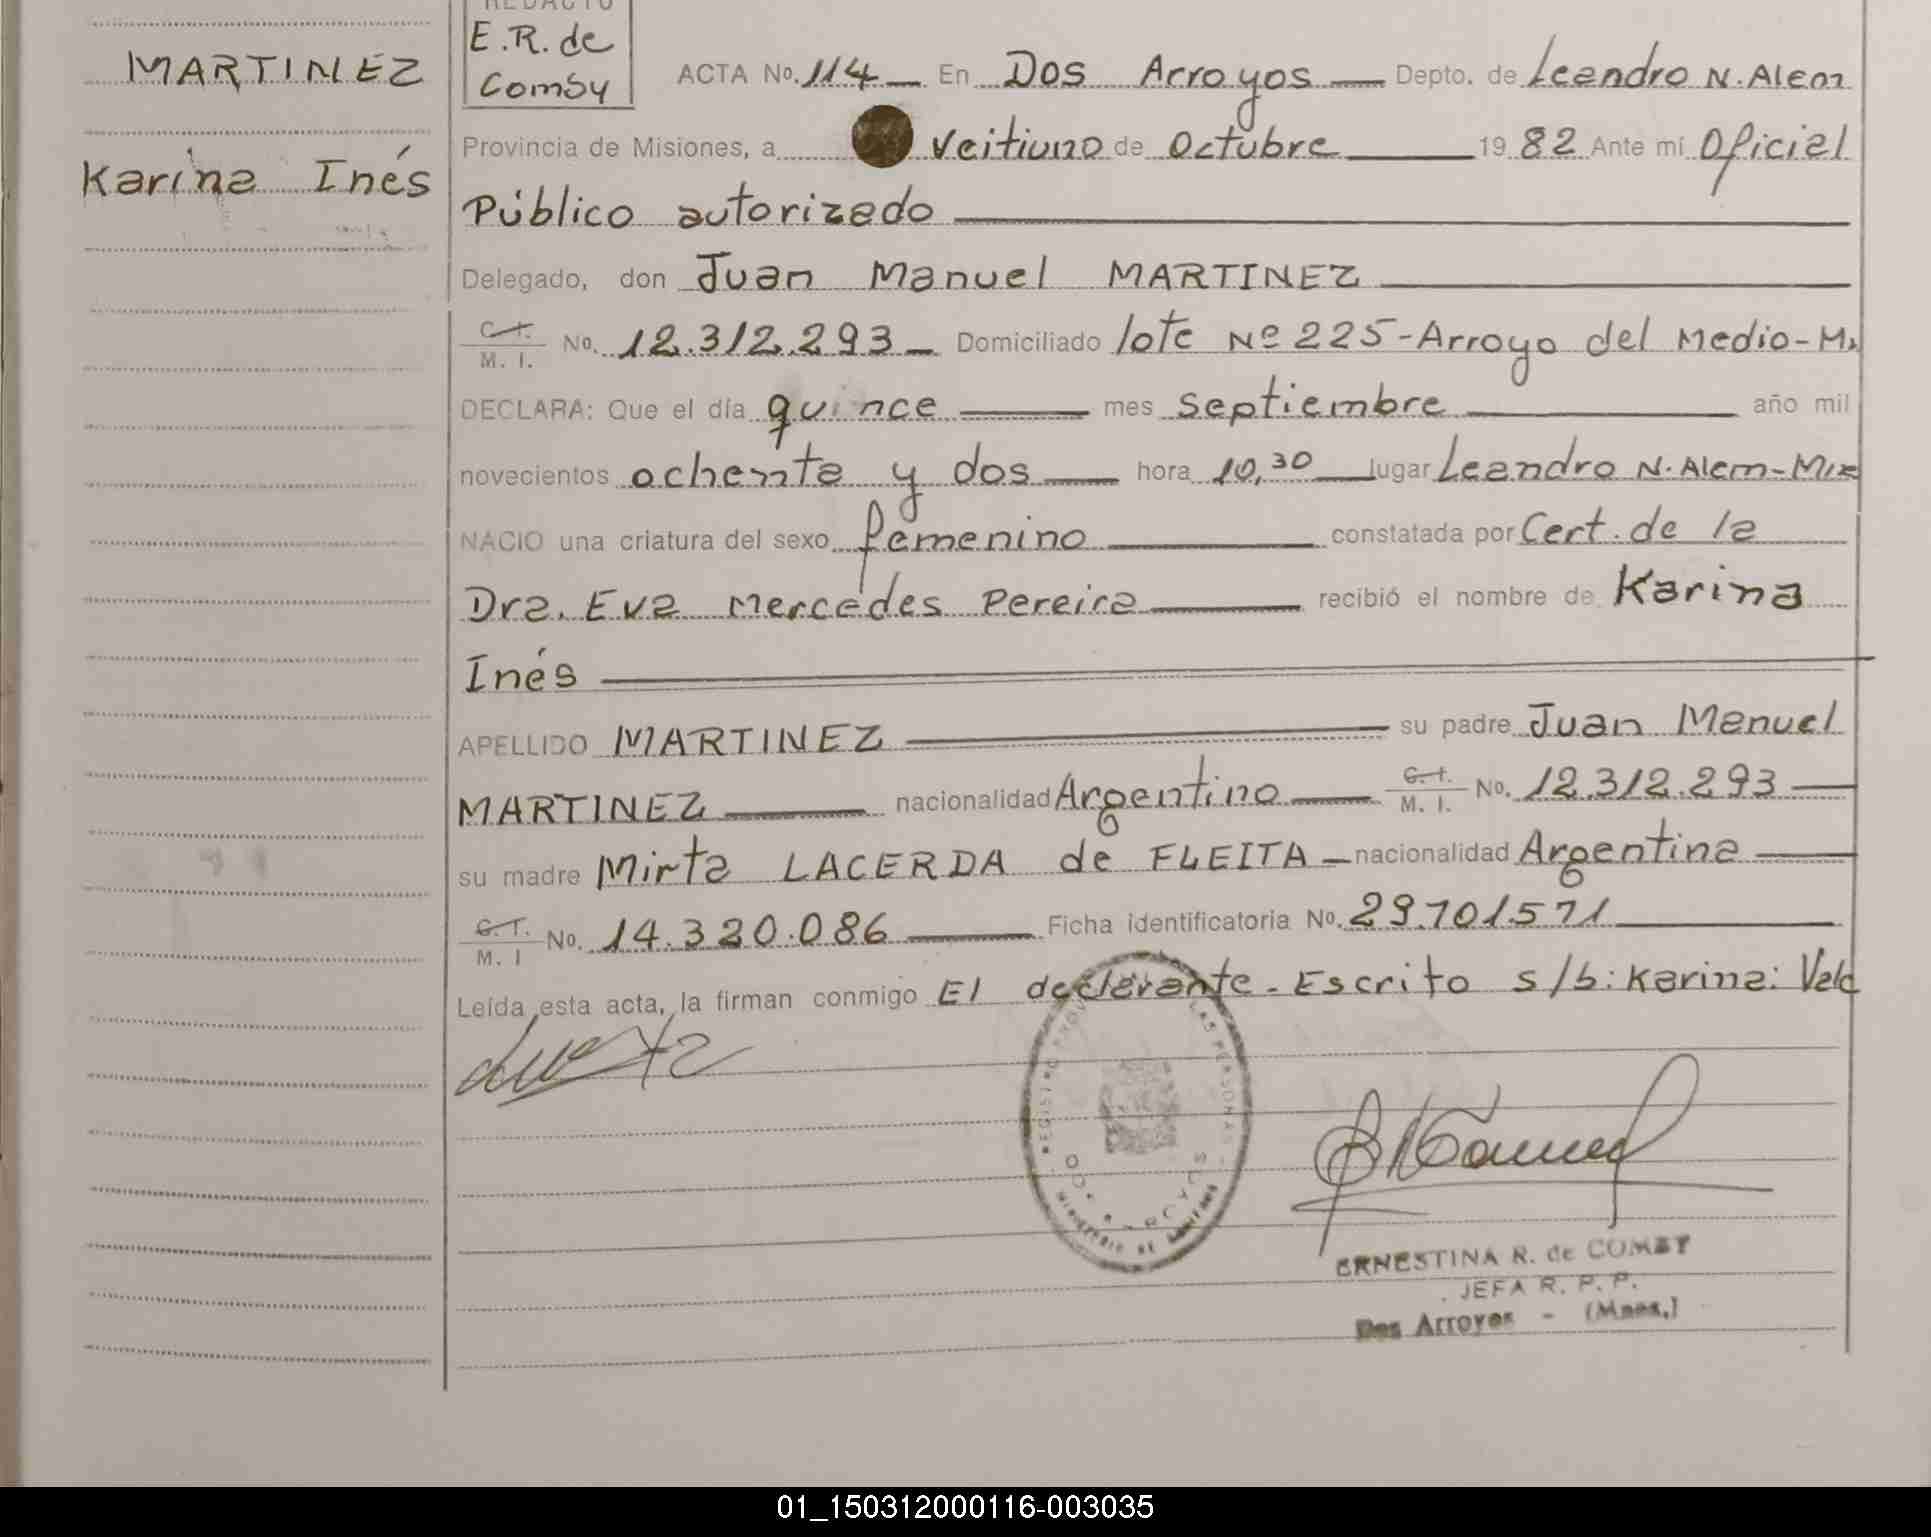 MARTINEZ
Karina Inés
REDACTO
E.R. de
Comby
ACTA No. 114 — En Dos Arroyos — Depto. de Leandro N. Alem
Provincia de Misiones, a Veitiuno de Octubre 1982 Ante mí Oficial
Público autorizado
Delegado, don Juan Manuel MARTINEZ
C. I. M. I. No. 12.312.293 — Domiciliado lote Nº 225 - Arroyo del Medio - M
DECLARA: Que el día quince mes Septiembre año mil
novecientos ochenta y dos — hora 10,30 lugar Leandro N. Alem - Mis
NACIO una criatura del sexo femenino constatada por Cert. de la
Dra. Eva Mercedes Pereira recibió el nombre de Karina
Inés
APELLIDO MARTINEZ su padre Juan Manuel
MARTINEZ nacionalidad Argentino C. I. M. I. No. 12.312.293
su madre Mirta LACERDA de FLEITA — nacionalidad Argentina
C. I. M. I No. 14.320.086 Ficha identificatoria No. 29.701571
Leída esta acta, la firman conmigo El declarante. Escrito s/b: Karina: Vale
ERNESTINA R. de COMBY
JEFA R. P. P.
Dos Arroyos - (Mnes.)
01_150312000116-003035